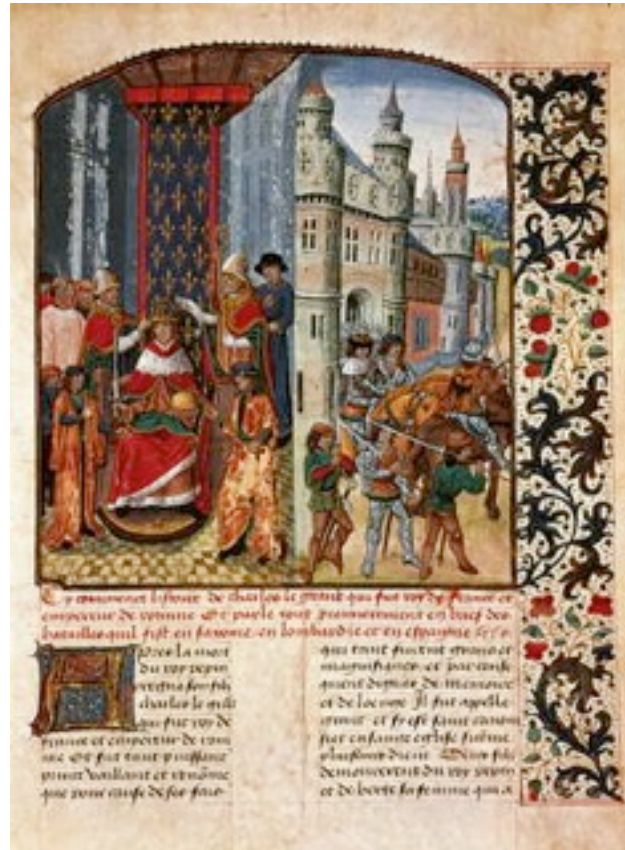 Cy commence listoire de charles le grant qui fut roy de france et
empereur de romme Et parle tout premierement en brief des
batailles quil fist en saxone, en lombardie et en espaigne
Apres la mort
du roy pepin
regna son filz
charles le
qui fut roy de
france et empereur de rom
me Et fut tant puissant
prince vaillant et renōme
que pour cause de ses fais
qui tant furent grans et
magnifiques et par conse
quent dignes de memoire
et de loenge Il fut appelle
grant et
fier en sainte eglise sicōme
plusieurs dient
demourerent du roy pepin
et de berte sa femme qui a